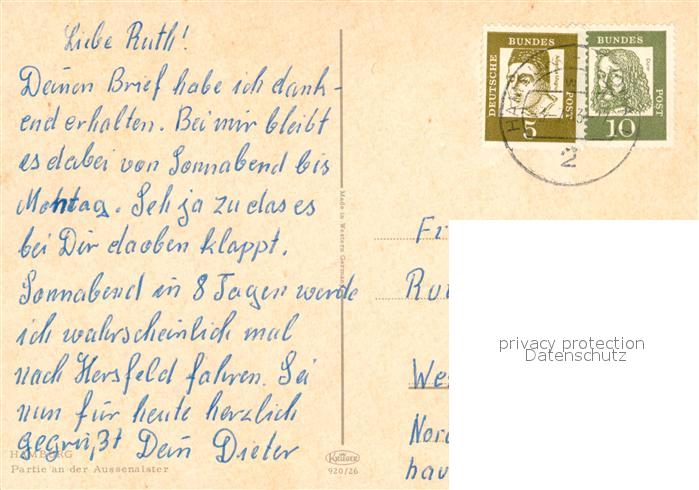 Liebe Ruth!
Deinen Brief habe ich dank-
end erhalten. Bei mir bleibt
es dabei von Sonnabend bis
Montag. Seh ja zu das es
bei Dir daoben klappt.
Sonnabend in 8 Tagen werde
ich wahrscheinlich mal
nach Hersfeld fahren. Sei
nun für heute herzlich
gegrüßt Dein Dieter
HAMBURG
Partie an der Aussenalster
Made in Western Germany
KRÜGER
920/26
DEUTSCHE
BUNDES
POST
5
BUNDES
POST
10
2
We
Nord
hav
privacy protection
Datenschutz